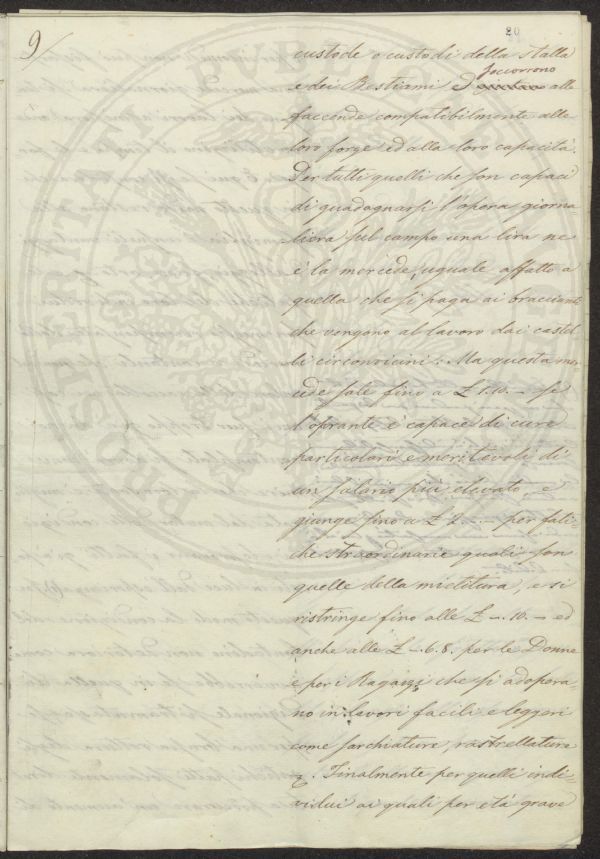 9/
20
custode o custodi della stalla
soccorrono
e dei Bestiami ed alle
faccende compatibilmente alle
loro forze ed alla loro capacità.
Per tutti quelli che son capaci
di guadagnarsi l'opera giorna=
liera sul campo una lira ne
è la mercede, uguale affatto a
quella che si paga ai braccianti
che vengono al lavoro dai castel=
li circonvicini: Ma questa mer=
cede sale fino a £ 1.10. – se
l'oprante è capace di cure
particolari e meritevoli di
un salario più elevato, e
giunge fino a £ 2. – . – per fati=
che straordinarie quali son
quelle della mietitura, e si
ristringe fino alle £ –. 10. – ed
anche alle £ –. 6. 8. per le Donne
e per i Ragazzi che si adopera=
no in lavori facili e leggeri
come sarchiature, rastrellature
&. Finalmente per quelli indi=
vidui ai quali per età grave
PROSPERITATI PUBLICAE